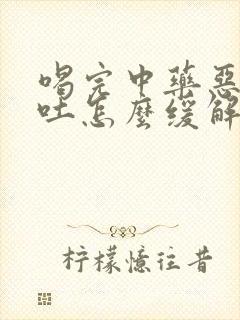 喝完中藥惡
吐怎麼緩解
柠檬憶往昔